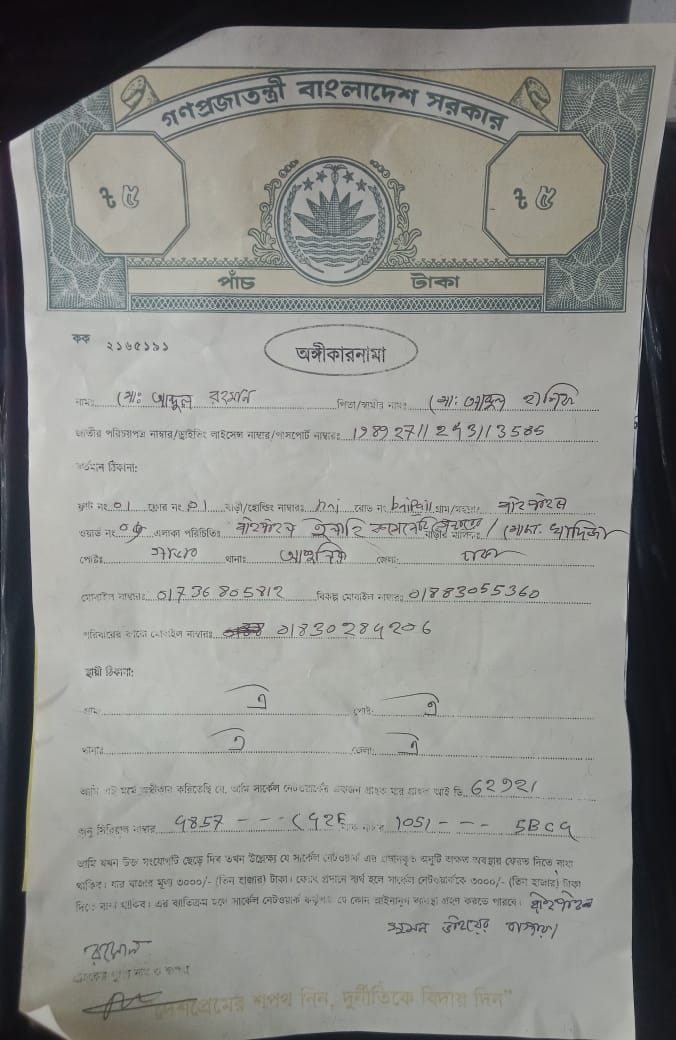 গণপ্রজাতন্ত্রী বাংলাদেশ সরকার
৳ ৫ ৳ ৫
পাঁচ টাকা
কক ২১৬৫১৯১
অঙ্গীকারনামা
নামঃ মো: আব্দুল রহমান পিতা/স্বামীর নামঃ মো: আব্দুল হানিফ
জাতীয় পরিচয়পত্র নাম্বার/ড্রাইভিং লাইসেন্স নাম্বার/পাসপোর্ট নাম্বারঃ
বর্তমান ঠিকানা:
ফ্ল্যাট নং 01 ফ্লোর নং 01 বাড়ী/হোল্ডিং নাম্বারঃ রোড নং গ্রাম/মহল্লাঃ
ওয়ার্ড নং এলাকা পরিচিতিঃ
পোষ্টঃ থানাঃ জেলাঃ ঢাকা
মোবাইল নাম্বারঃ 01736805812 বিকল্প মোবাইল নাম্বারঃ 01883055360
পরিবারের মোবাইল নাম্বারঃ 01830284206
স্থায়ী ঠিকানা:
গ্রাম: ঐ পোষ্ট: ঐ
থানাঃ ঐ জেলা: ঐ
আমি এই মর্মে অঙ্গীকার করিতেছি যে, আমি সার্কেল নেটওয়ার্কের একজন গ্রাহক যার গ্রাহক আই ডি. 62921
অনু সিরিয়াল নাম্বার 4857 --- C42E 1051 --- 5BC9
আমি যখন উক্ত সংযোগটি ছেড়ে দিব তখন উল্লেখ্য যে সার্কেল নেটওয়ার্ক এর প্রদানকৃত অনুটি অক্ষত অবস্থায় ফেরত দিতে বাধ্য
থাকিব। যার বাজার মূল্য ৩০০০/- (তিন হাজার) টাকা। ফেরত প্রদানে ব্যর্থ হলে সার্কেল নেটওয়ার্ককে ৩০০০/- (তিন হাজার) টাকা
দিতে বাধ্য থাকিব। এর ব্যতিক্রম হলে সার্কেল নেটওয়ার্ক কর্তৃপক্ষ যে কোন আইনানুগ ব্যবস্থা গ্রহণ করতে পারবে।
সুমন ভাইয়ের বাসা।
রহমান
দেশপ্রেমের শপথ নিন, দুর্নীতিকে বিদায় দিন"